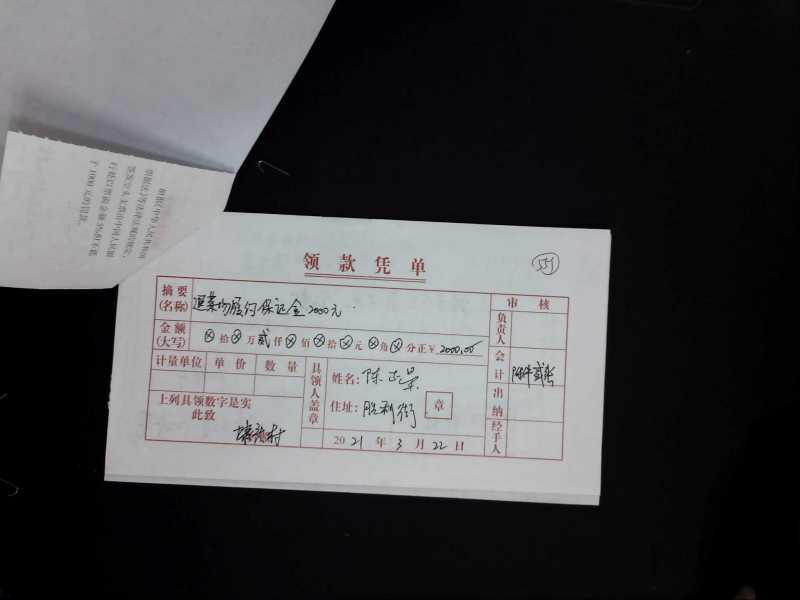 领款凭单
551
摘要(名称) 退菜场履约保证金2000元.
审核
金额(大写) ⊗拾⊗万贰仟⊗佰⊗拾⊗元⊗角⊗分正¥2000.00
负责人
计量单位 单价 数量
具领人盖章
姓名: 陈正
会计 附件贰张
住址: 胜利街 章
出纳
上列具领数字是实
此致
2021年3月22日
经手人
村
于1000元的罚款。